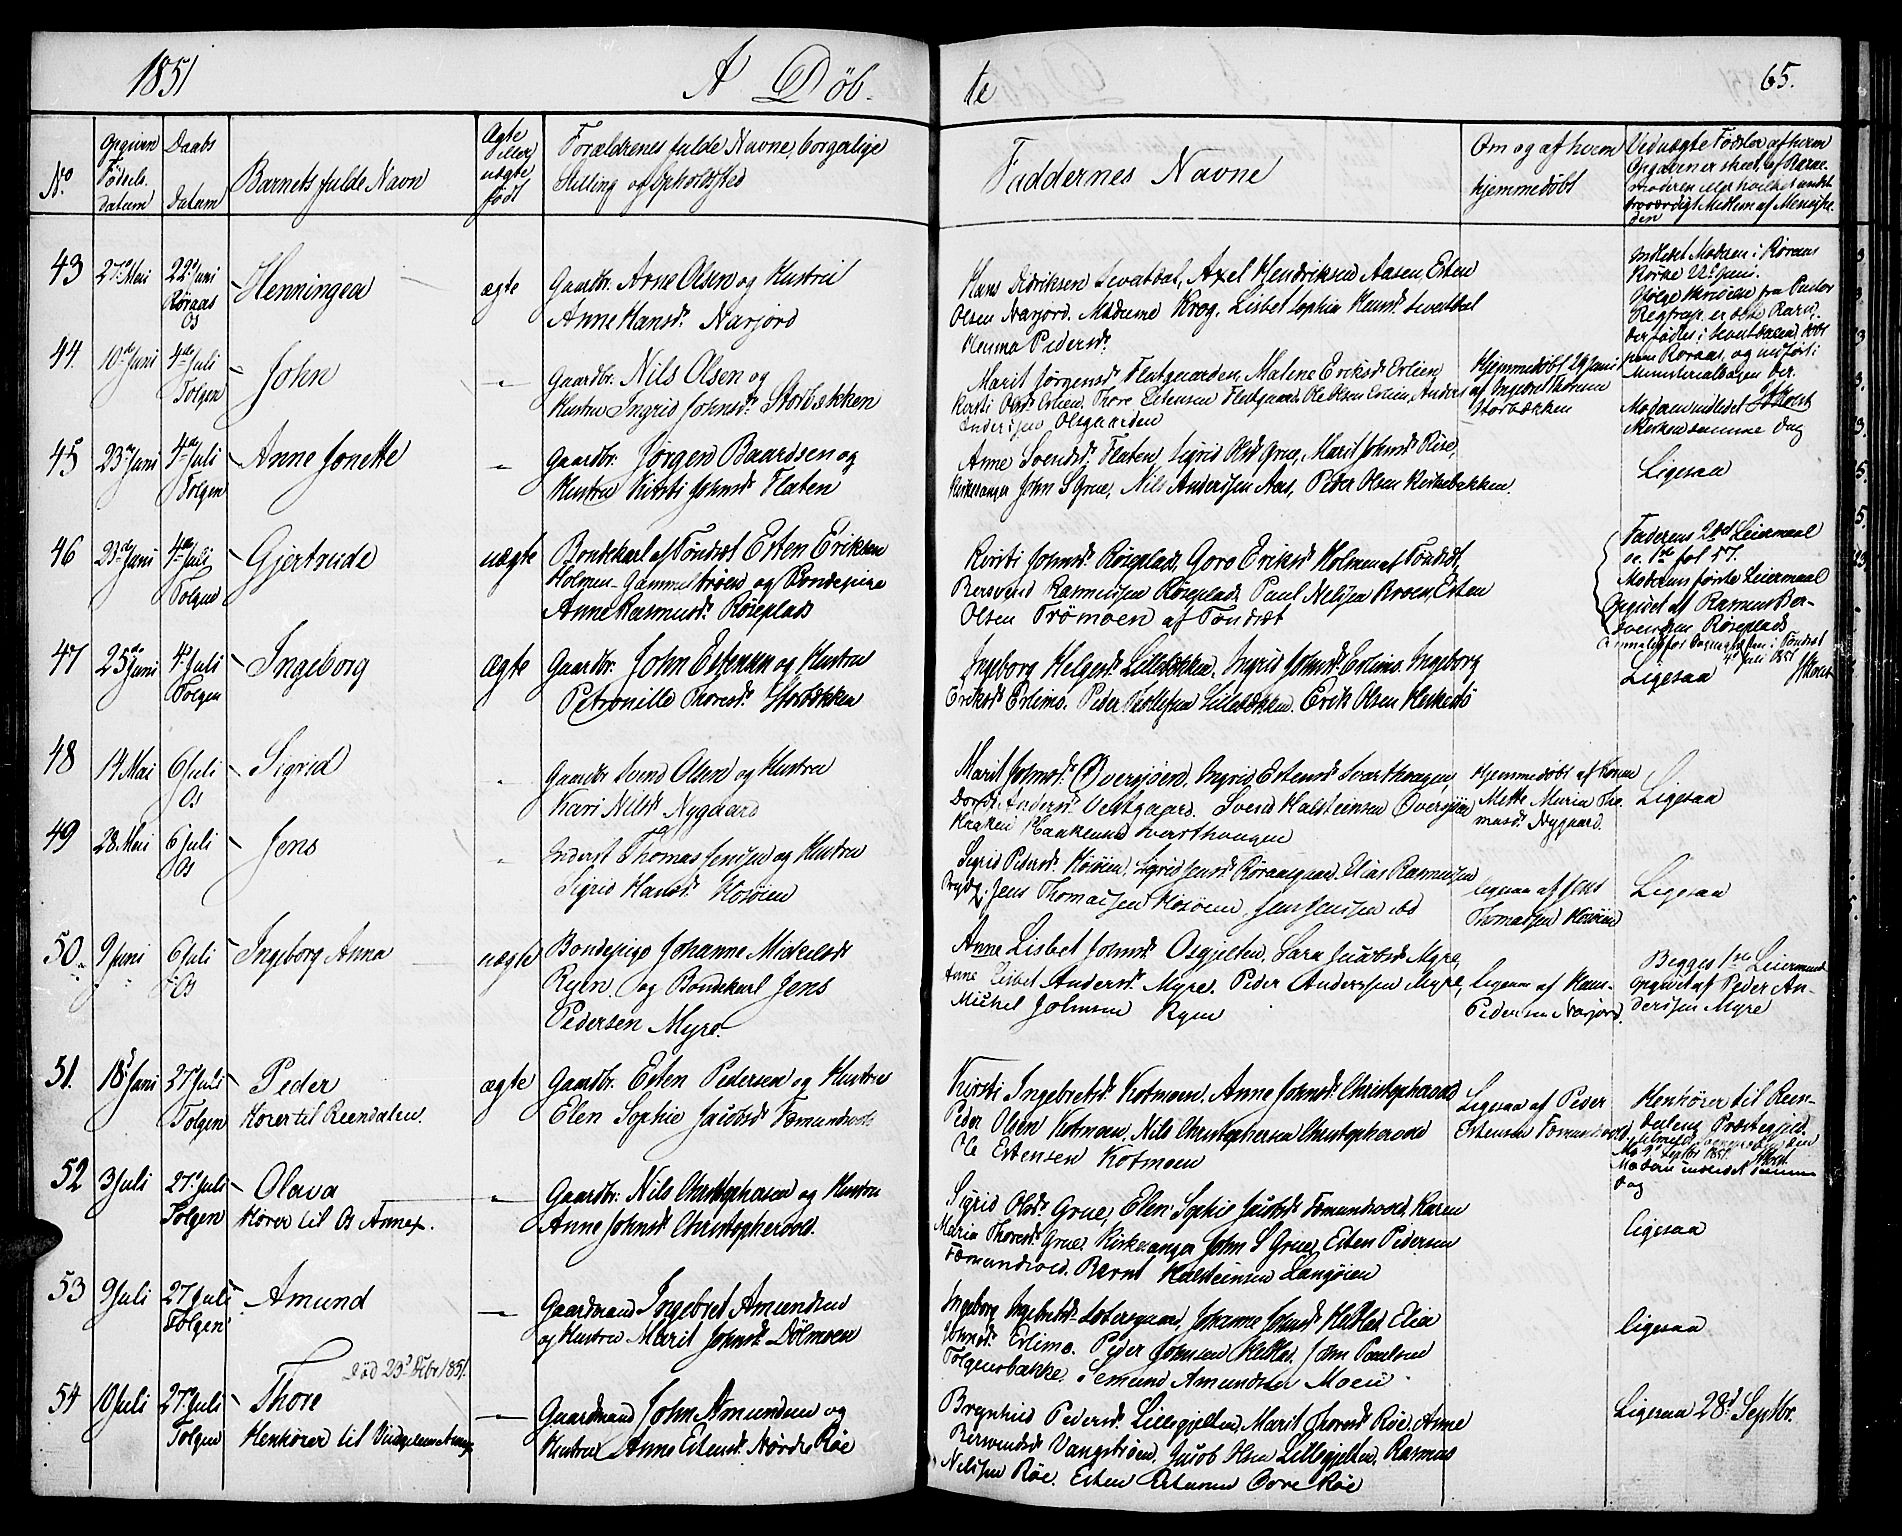 1851 A Døb-
te 65.
No
Opgiven Fødsels-datum
Daabs Datum
Barnets fulde Navn
Ægte eller uægte født
Forældrenes fulde Navne, borgerlige
Stilling og Opholdsted
Faddernes Navne
Om og af hvem
hjemmedøbt
Ved uægte Fødsler af hvem
Opgaven er skeet, af Barne-
moderen eller hvilket andet
troværdigt Medlem af Menighe-
den
43 27de Mai 22de Juni Røraas Os
Henningea
ægte
Gaardbr. Arne Olsen og Hustru
Anne Hansd. Narjord
Hans Didriksen Sevatdal, Axel Hendriksen Aasen, Esten
Olsen Narjord. Madame Krog. Lisbet Sophia Hansd. Sevatdal
Pedersd.
Indledet Moderen i Røraas
Kirke 22de Juni.
Ifølge Skrivelse fra Pastor
er dette Barn,
Røraas, og indført i
Ministerialbogen der.
44 10de Juni 4de Juli Tolgen
John
"
Gaardbr. Nils Olsen og
Hustru Ingrid Johnsd. Storbekken
Marit Jørgensd. Flatgaarden, Malene Eriksd. Erlien
Kirsti Olsd. Erlien. Thore Estensen Flatgaard, Ole Olsen Erlien, Anders
Andersen Olsgaarden
Hjemmedøbt 24 Juni
af Ingebret Thoresen
Storbækken
Moderen indledet
Kirken samme Dag
45 23de Juni 4de Juli Tolgen
Anne Jonette
"
Gaardbr. Jørgen Baardsen og
Hustru Kirsti Johnsd. Flaten
Anne Svendsd. Flaten, Sigrid Olsd. Grue, Marit Johnsd. Røe,
Kirkesanger John S Grue, Nils Andersen Aas, Peder Olsen Kirkebakken.
Ligesaa
46 23de Juni 4de Juli Tolgen
Gjertrude
uægte
Bondekarl af Tøndset Esten Eriksen
Holmen Gammeltrøen og Bondepige
Anne Rasmusd. Røseplads
Kirsti Johnsd. Røseplads, Goro Eriksd. Holmen af Tøndset,
Bersvend Rasmussen Røseplads. Paul Nelsen Broen, Esten
Olsen Trømoen af Tøndset
Faderens 2det Leiermaal
se 1ste fol 57.
Moderens første Leiermaal
Opgivet af Rasmus Ber-
svendsen Røseplads
4de Juli 1851
47 25de Juni 4de Juli Tolgen
Ingeborg
ægte
Gaardbr. John Estensen og Hustru
Petronille Thoresd. Storbækken
Ingeborg Helgesd. Lillebækken. Ingrid Johnsd. Erlimo. Ingeborg
Eriksd. Erlimo. Peder Lillebækken. Erik Olsen
Ligesaa
48 14 Mai 6 Juli Os
Sigrid
"
Gaardbr Svend Olsen og Hustru
Kari Nilsd. Nygaard
Marit Johnsd. Øversjøen, Ingrid Estensd. Svarthaugen,
Andersd. Vestgaard. Svend Halsteinsen Øversjøen
Haaken Svarthaugen
Hjemmedøbt af Konen
Mette Maria Tho-
masd. Nygaard.
Ligesaa
49 28 Mai 6 Juli Os
Jens
"
Inderst Thomas Jensen og Hustru
Sigrid Hansd. Hosøien
Sigrid Pedersd. Hosøien, Sigrid Jensd. Røraasgaard, Elias Rasmussen
Bryg. Jens Thomassen Hosøien, Jens Jensen ibd
Ligesaa af Jens
Thomassen Hosøien
Ligesaa
50 9 Juni 6 Juli Os
Ingeborg Anna
uægte
Bondepige Johanne Mickelsd.
Ryen og Bondekarl Jens
Pedersen Myre.
Anne Lisbet Johnsd. Osgjelten, Sara Jacobsd. Myre,
Anne Lisbet Andersd. Myre. Peder Andersen Myre,
Michel Johnsen Ryen
Ligesaa af Hans
Pedersen Narjord.
Begges 1ste Leiermaal
Opgivet af Peder An-
dersen Myre
51. 18de Juni 27de Juli Tolgen
Peder
Hører til Reendalen.
ægte
Gaardbr. Esten Pedersen og Hustru
Elen Sophie Jacobsd. Fæmundvold
Kirsti Ingebretsd. Kotmoen. Anne Johnsd. Christophervold
Peder Olsen Kotmoen, Nils Christophersen Christophervold
Ole Estensen Kotmoen
Ligesaa af Peder
Estensen Fæmundvold
Henhører til Reen-
dalens Præstegjeld.
Septbr 1851.
Moderen indledet samme
Dag
52 3 Juli 27de Juli Tolgen
Olava
Hører til Os Annex.
"
Gaardbr. Nils Christophersen og Hustru
Anne Johnsd. Christophervold.
Sigrid Olsd. Grue, Elen Sophie Jacobsd. Fæmundvold, Karen
Maria Thoresd. Grue, Kirkesanger John S Grue, Esten Pedersen
Fæmundvold. Bernt Halsteinsen Langøien
Ligesaa
53 9 Juli 27 Juli Tolgen
Amund
"
Gaardmand Ingebret Amundsen
og Hustru Marit Johnsd. Dølmoen
Ingeborg Ingebretsd. , Johanne Johnsd. , Elia
Johnsd. Erlimo. Peder Johnsen , John Paulsen
Amundsen Moen.
Ligesaa
54 10 Juli 27de Juli Tolgen
død 23de Febr 1851.
Thore
Henhører til Vingelens Annex
"
Gaardmand John Amundsen og
Hustru Anne Estensd. Nordre Røe
Brynhild Pedersd. Lillegjelten, Marit Thoresd. Røe. Anne
Bersvendsd. Vangstrøen, Jacob Olsen Lillegjelten, Rasmus
Nelsen Røe. Esten Estensen Røe
Ligesaa 28de Septbr.